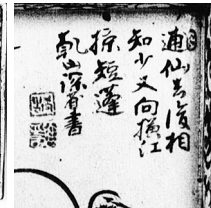 逋仙去後相
知少又向横江
掠短蓬
乾山深省書